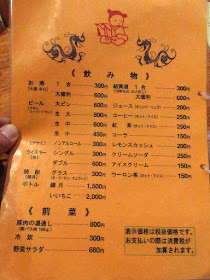 《飲み物》
お酒 1合 300円
大徳利 600円
ビール 大ビン 600円
生大 800円
生中 600円
生小 450円
ノンアルコール 400円
ウイスキー シングル 300円
ダブル 600円
焼酎 グラス 300円
ボトル 銀月 1,500円
いいちこ 2,000円
紹興酒 1合 300円
大徳利 600円
ジュース 200円
コーヒー 250円
紅茶 250円
コーラ 250円
レモンスカッシュ 250円
クリームソーダ 250円
アイスクリーム 150円
ウーロン茶 150円
《前菜》
豚肉の湯通し 800円
冷奴 300円
野菜サラダ 680円
表示価格は税抜価格です。
お支払いの際は消費税が
加算されます。